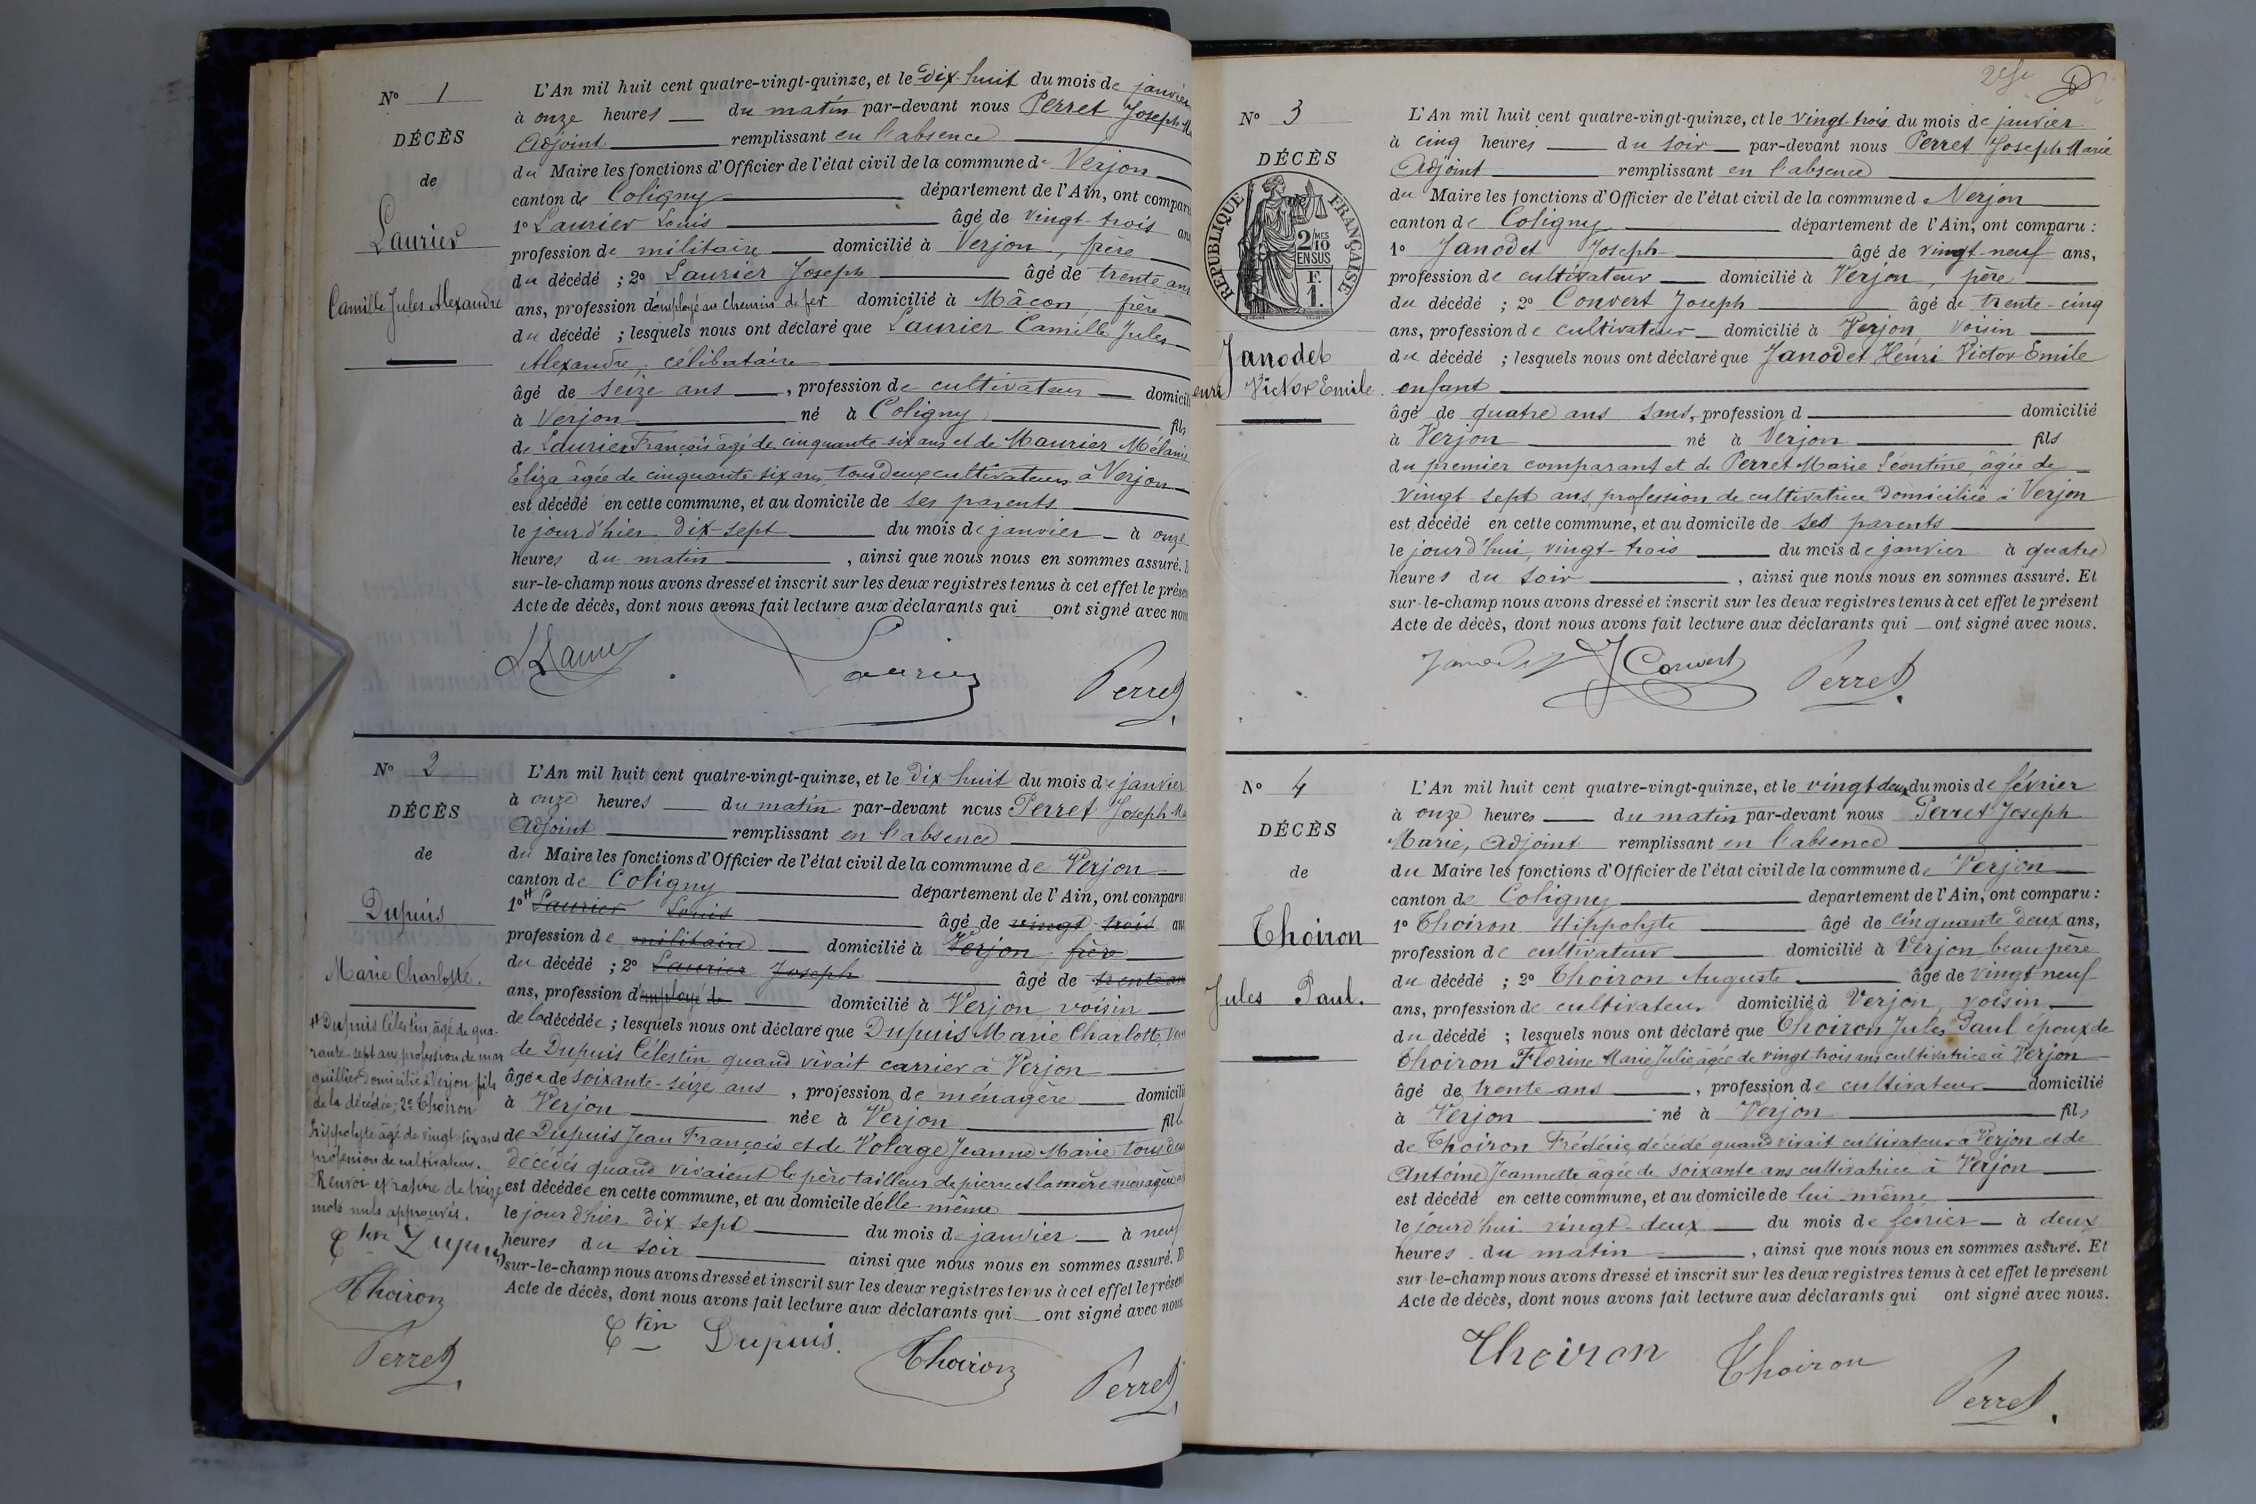 N° 1
DÉCÈS
de
Laurier
Camille Jules Alexandre
L'An mil huit cent quatre-vingt-quinze, et le dix-huit du mois de janvier
à onze heures du matin par-devant nous Perret Joseph M
Adjoint remplissant en l'absence
du Maire les fonctions d'Officier de l'état civil de la commune de Verjon
canton de Coligny département de l'Ain, ont comparu
1° Laurier Louis âgé de vingt-trois ans
profession de militaire domicilié à Verjon, frère
du décédé ; 2° Laurier Joseph âgé de trente ans
ans, profession d'employé au chemin de fer domicilié à Mâcon, frère
du décédé ; lesquels nous ont déclaré que Laurier Camille Jules
Alexandre, célibataire
âgé de seize ans, profession de cultivateur domicili
à Verjon né à Coligny fils
de Laurier François âgé de cinquante-six ans et de Maurier Mélanie
Eliza âgée de cinquante-six ans, tous deux cultivateurs à Verjon
est décédé en cette commune, et au domicile de ses parents
le jour d'hier dix-sept du mois de janvier à onze
heures du matin, ainsi que nous nous en sommes assuré. E
sur-le-champ nous avons dressé et inscrit sur les deux registres tenus à cet effet le présen
Acte de décès, dont nous avons fait lecture aux déclarants qui ont signé avec nou
Laurier
Perret
N° 2
DÉCÈS
de
Dupuis
Marie Charlotte.
L'An mil huit cent quatre-vingt-quinze, et le dix huit du mois de janvier
à onze heures du matin par-devant nous Perret Joseph Ma
Adjoint remplissant en l'absence
du Maire les fonctions d'Officier de l'état civil de la commune de Verjon
canton de Coligny département de l'Ain, ont comparu
1° # Laurier Louis âgé de vingt-trois ans
profession de militaire domicilié à Verjon, frère
du décédé ; 2° Laurier Joseph âgé de trente ans
ans, profession d'employé de domicilié à Verjon, voisin
de la décédée ; lesquels nous ont déclaré que Dupuis Marie Charlotte, Veu
de Dupuis Célestin quand vivait carrier à Verjon
âgée de soixante-seize ans, profession de ménagère domicili
à Verjon née à Verjon fille
de Dupuis Jean François et de Volage Jeanne Marie tous deux
décédés quand vivaient le père tailleur de pierre et la mère ménagère
est décédée en cette commune, et au domicile d'elle-même
le jour d'hier dix-sept du mois de janvier à neuf
heures du soir ainsi que nous nous en sommes assuré. E
sur-le-champ nous avons dressé et inscrit sur les deux registres tenus à cet effet le présen
Acte de décès, dont nous avons fait lecture aux déclarants qui ont signé avec nous
# Dupuis Célestin, âgé de qua-
rante-sept ans profession de mar
guillier domicilié à Verjon, fils
de la décédée; 2° Thoiron
Hippolyte âgé de vingt-six ans
profession de cultivateur.
Renvoi et rature de treize
mots nuls approuvés.
Ctin Dupuis
Thoiron
Perret
Ctin Dupuis.
Thoiron
Perret
N° 3
DÉCÈS
RÉPUBLIQUE FRANÇAISE
2/10 MES
EN SUS
F.
1.
Janodet
enri Victor Emile.
L'An mil huit cent quatre-vingt-quinze, et le vingt-trois du mois de janvier
à cinq heures du soir par-devant nous Perret Joseph Marie
Adjoint remplissant en l'absence
du Maire les fonctions d'Officier de l'état civil de la commune de Verjon
canton de Coligny département de l'Ain, ont comparu :
1° Janodet Joseph âgé de vingt-neuf ans,
profession de cultivateur domicilié à Verjon, père
du décédé ; 2° Convert Joseph âgé de trente-cinq
ans, profession de cultivateur domicilié à Verjon, voisin
du décédé ; lesquels nous ont déclaré que Janodet Henri Victor Emile
enfant
âgé de quatre ans sans, profession d domicilié
à Verjon né à Verjon fils
du premier comparant et de Perret Marie Léontine, âgée de
vingt-sept ans, profession de cultivatrice domiciliée à Verjon
est décédé en cette commune, et au domicile de ses parents
le jour d'hui, vingt-trois du mois de janvier à quatre
heures du soir, ainsi que nous nous en sommes assuré. Et
sur-le-champ nous avons dressé et inscrit sur les deux registres tenus à cet effet le présent
Acte de décès, dont nous avons fait lecture aux déclarants qui ont signé avec nous.
Janodet J Convert Perret
N° 4
DÉCÈS
de
Thoiron
Jules Paul.
L'An mil huit cent quatre-vingt-quinze, et le vingt deux du mois de février
à onze heures du matin par-devant nous Perret Joseph
Marie, Adjoint remplissant en l'absence
du Maire les fonctions d'Officier de l'état civil de la commune de Verjon
canton de Coligny département de l'Ain, ont comparu :
1° Thoiron Hippolyte âgé de cinquante deux ans,
profession de cultivateur domicilié à Verjon, beau père
du décédé ; 2° Thoiron Auguste âgé de vingt-neuf
ans, profession de cultivateur domicilié à Verjon, voisin
du décédé ; lesquels nous ont déclaré que Thoiron Jules Paul époux de
Thoiron Florine Marie Julie, âgée de vingt trois ans cultivatrice à Verjon
âgé de trente ans, profession de cultivateur domicilié
à Verjon né à Verjon fils
de Thoiron Frédéric, décédé quand vivait cultivateur à Verjon et de
Antoine Jeannette âgée de soixante ans cultivatrice à Verjon
est décédé en cette commune, et au domicile de lui-même
le jour d'hui vingt-deux du mois de février à deux
heures du matin, ainsi que nous nous en sommes assuré. Et
sur-le-champ nous avons dressé et inscrit sur les deux registres tenus à cet effet le présent
Acte de décès, dont nous avons fait lecture aux déclarants qui ont signé avec nous.
Thoiron Thoiron
Perret.